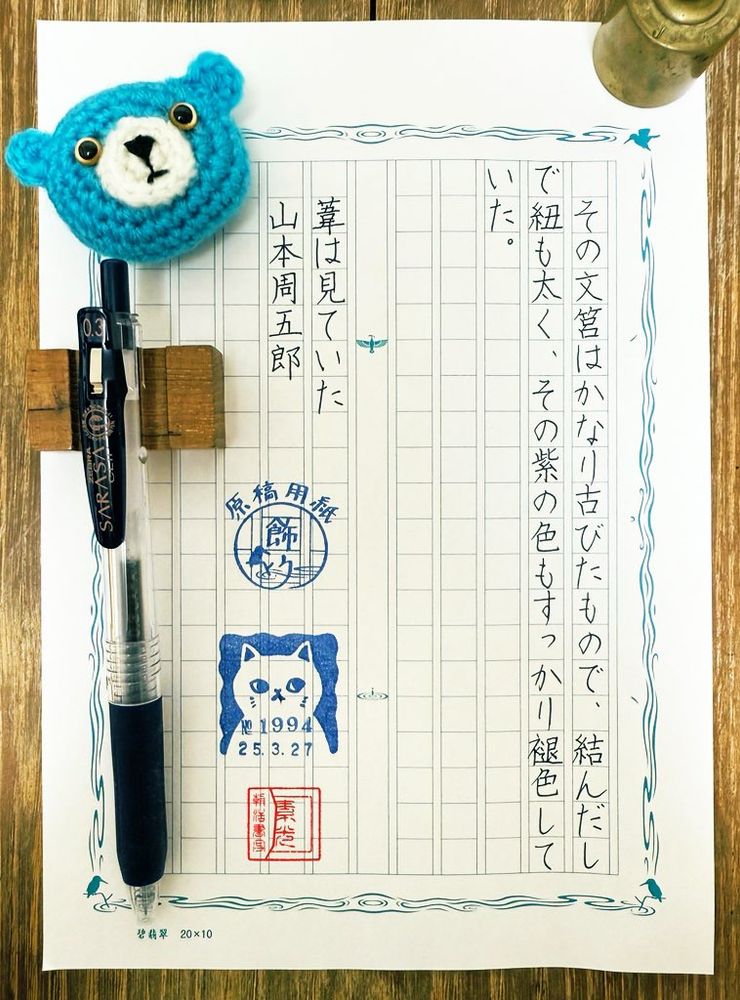 その文筥はかなり古びたもので、結んだし
で紐も太く、その紫の色もすっかり褪色して
いた。
葦は見ていた
山本周五郎
原稿用紙
飾り
№1994
25.3.27
碧翡翠 20×10
0.3
ZEBRA
SARASA
CLIP